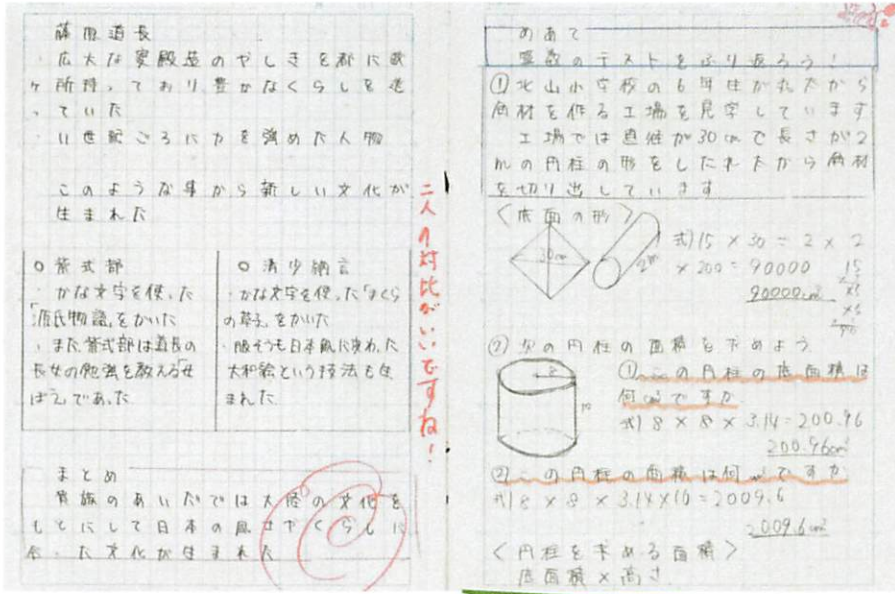 藤原道長
・広大な寝殿造のやしきを都に
ヶ所持っており豊かなくらしを送
っていた
・11世紀ごろに力を強めた人物
このような事から新しい文化が
生まれた
○紫式部
・かな文字を使った
「源氏物語」をかいた
・また紫式部は道長の
長女の勉強を教える「せ
ぼう」であった
○清少納言
・かな文字を使った「まくら
の草子」をかいた
・服そうも日本風に変わった
大和絵という技法も生
まれた
二人の対比がいいですね!
まとめ
貴族のあいだでは大陸の文化を
もとにして日本の風さやくらしに
合った文化が生まれた
めあて
算数のテストをふり返ろう!
①北山小学校の6年生が丸太から
角材を作る工場を見学しています
工場では直径が30cmで長さが2
mの円柱の形をした丸太から角材
を切り出しています
〈底面の形〉
30cm
2m
式)15×30÷2×2
×200=90000
90000cm³
②次の円柱の面積を求めよう
8
10
①この円柱の底面積は
何cm²ですか
式)8×8×3.14=200.96
200.96cm²
②この円柱の面積は何cm³ですか
式)8×8×3.14×10=2009.6
2009.6cm³
〈円柱を求める面積〉
底面積×高さ